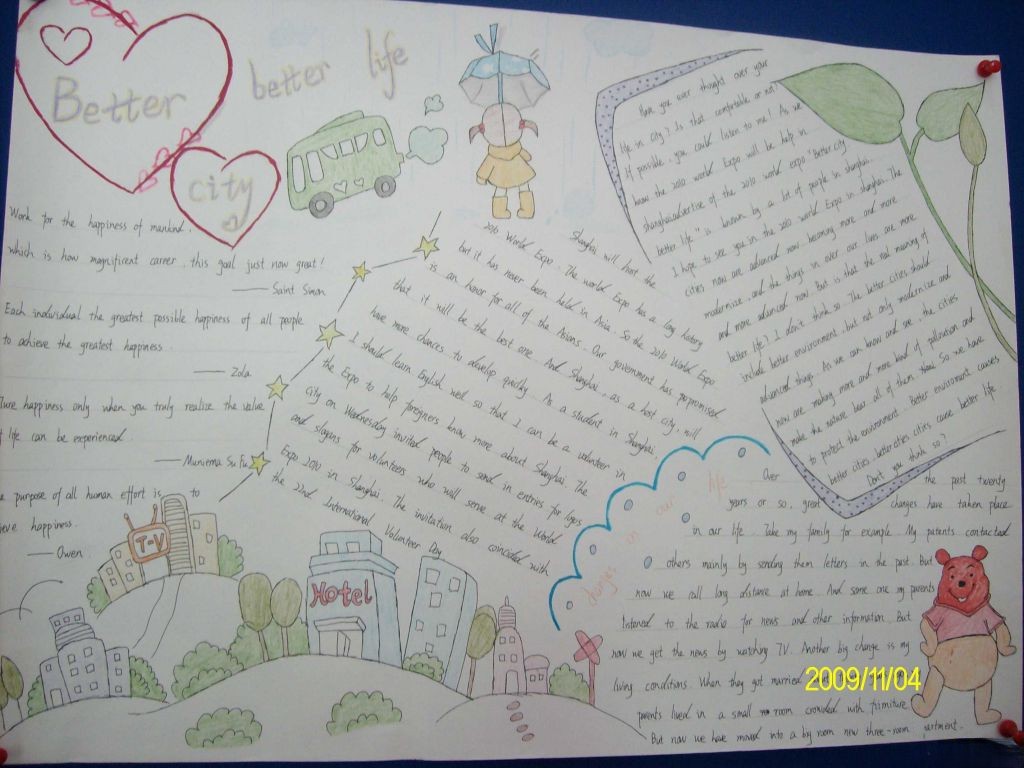 Better
city
better life
Work for the happiness of mankind,
which is how magnificent career, this goal just now great!
—— Saint Simon
Each individual the greatest possible happiness of all people
to achieve the greatest happiness.
—— Zola
happiness only when you truly realize the value
life can be experienced.
—— Muniema Su Fu
purpose of all human effort is to
happiness.
—— Owen.
T-V
Hotel
Shanghai will host the
2010 World Expo. The world Expo has a long history
but it has never been held in Asia. So the 2010 World Expo
is an honor for all of the Asians. Our government has purpomised
that it will be the best one. And Shanghai, as a host city, will
have more chances to develop quickly. As a student in Shanghai,
I should learn English well so that I can be a volunteer in
the Expo to help foreigners know more about Shanghai. The
City on Wednesday invited people to send in entries for logos
and slogans for volunteers who will serve at the World
Expo 2010 in Shanghai. The invitation also coincided with
the 22nd International Volunteer Day
Have you ever thought over your
life in city? Is that comfortable or not?
If possible, you could listen to me! As we
know the 2010 world Expo will be help in
shanghai.advertise of the 2010 world expo "Better city
better life" is known by a lot of people in shanghai.
I hope to see you in the 2010 world Expo in shanghai. The
cities now are advanced now, becoming more and more
modernize, and the things in over our lives are more
and more advanced now. But is that the real meaning of
better life? I don't think so. The better cities should
include better environment, but not only modernize and
advanced things. As we can know and see, the cities
now are making more and more kind of pollowtion and
make the nature bear all of them. Thus, So we have
to protect the environment. Better enviroment causes
better cities, better cities cause better life.
Don't you think so?
changes in our life
Over the past twenty
years or so, great changes have taken place
in our life. Take my family for example. My patents contacted
others mainly by sending them letters in the past. But
now we call long distance at home. And some one my parents
listened to the radio for news and other information. But
now we get the news by watching TV. Another big change is my
living conditions. When they got married
parents lived in a small room crowded with furniture.
But now we have moved into a big room new three-room
2009/11/04